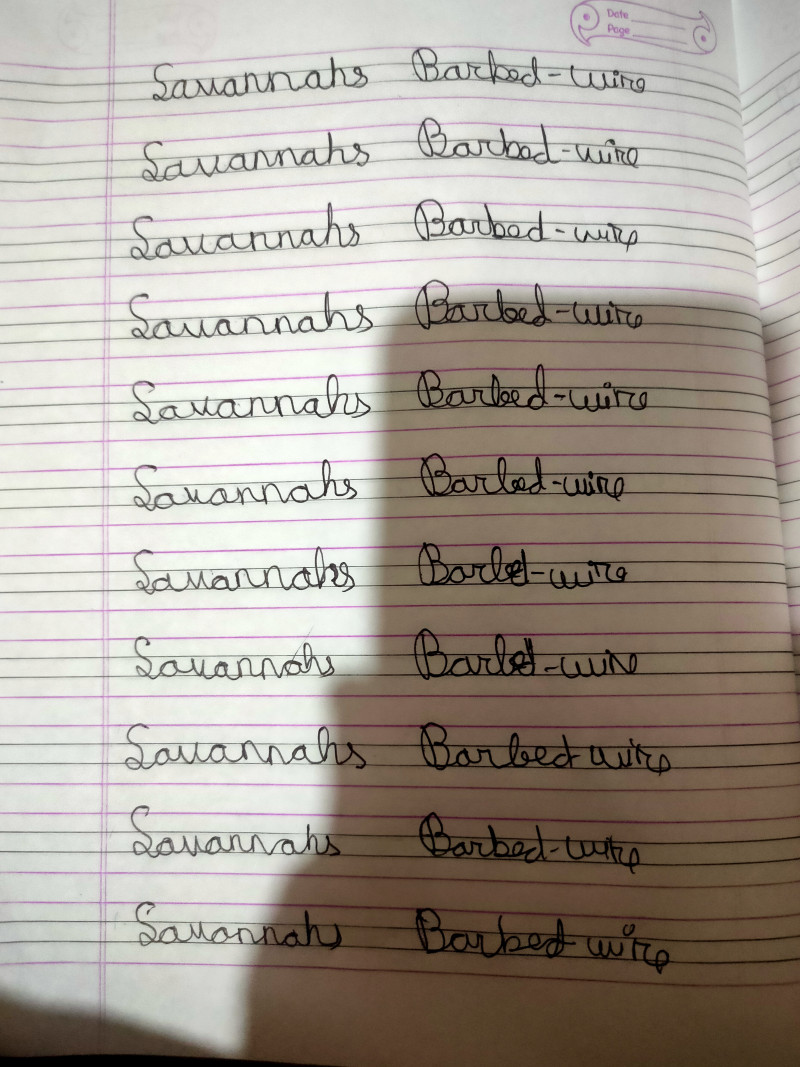 Date
Page
Savannahs Barbed-wire
Savannahs Barbed-wire
Savannahs Barbed-wire
Savannahs Barbed-wire
Savannahs Barbed-wire
Savannahs Barbed-wire
Savannahs Barbed-wire
Savannahs Barbed-wire
Savannahs Barbed wire
Savannahs Barbed-wire
Savannahs Barbed wire